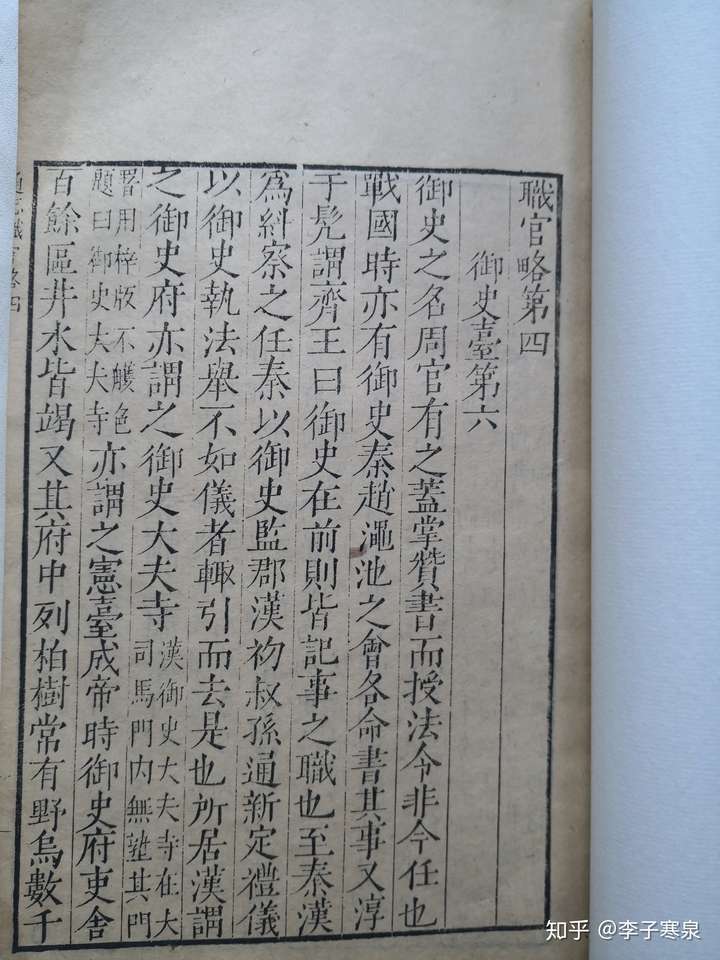 職官略第四
御史臺第六
御史之名周官有之蓋掌贊書而授法令非今任也
戰國時亦有御史秦趙澠池之會各命書其事又淳
于髠謂齊王曰御史在前則皆記事之職也至秦漢
爲糾察之任秦以御史監郡漢初叔孫通新定禮儀
以御史執法舉不如儀者輙引而去是也所居漢謂
之御史府亦謂之御史大夫寺漢御史大夫寺在大司馬門内無塾其門
署用梓版不雘色題曰御史大夫寺亦謂之憲臺成帝時御史府吏舍
百餘區井水皆竭又其府中列柏樹常有野烏數千
通志職官略四
知乎 @李子寒泉